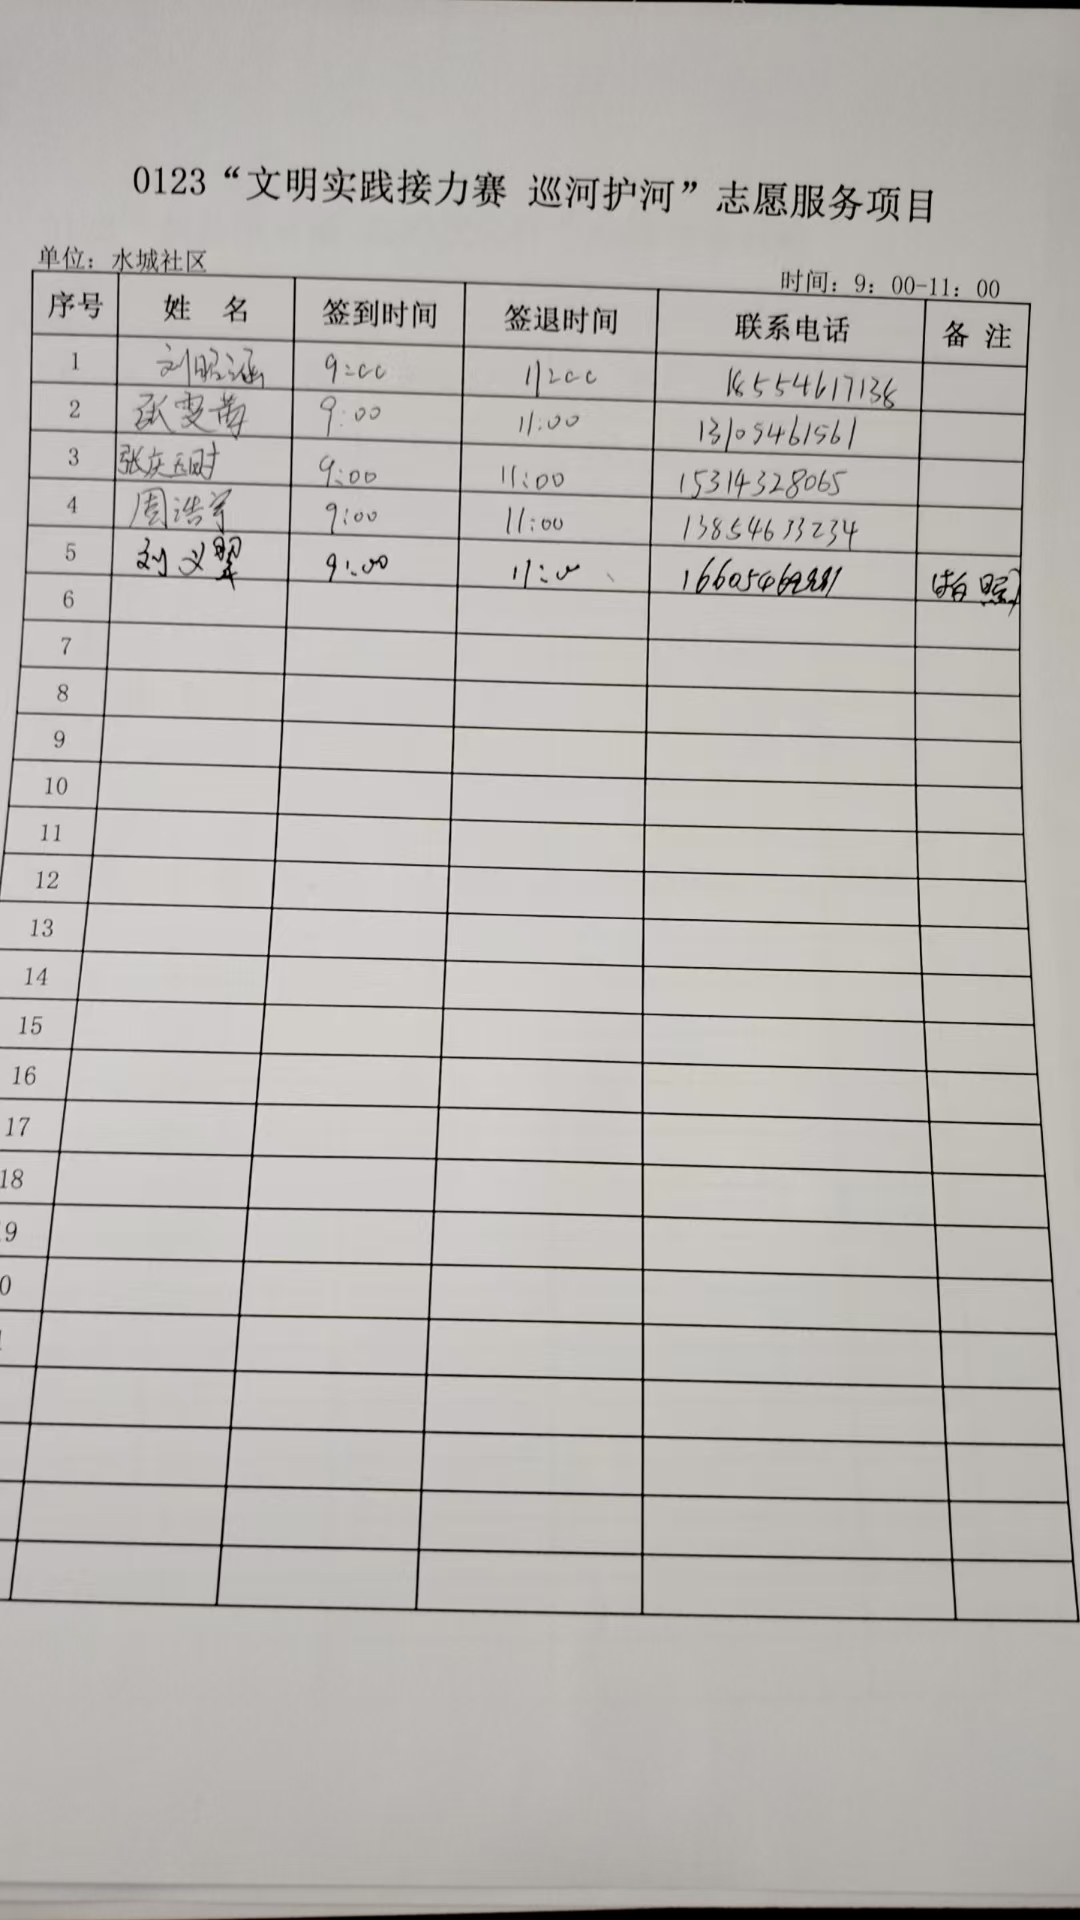 0123“文明实践接力赛 巡河护河”志愿服务项目
单位：水城社区 时间：9：00-11：00
序号 姓 名 签到时间 签退时间 联系电话 备 注
1 刘昭涵 9:00 11:00 18554617138
2 张雯 9:00 11:00 13105461561
3 张庆 9:00 11:00 15314328065
4 周浩宇 9:00 11:00 13854633234
5 刘义翠 9:00 11:00 (拍照)
6
7
8
9
10
11
12
13
14
15
16
17
18
19
0
1